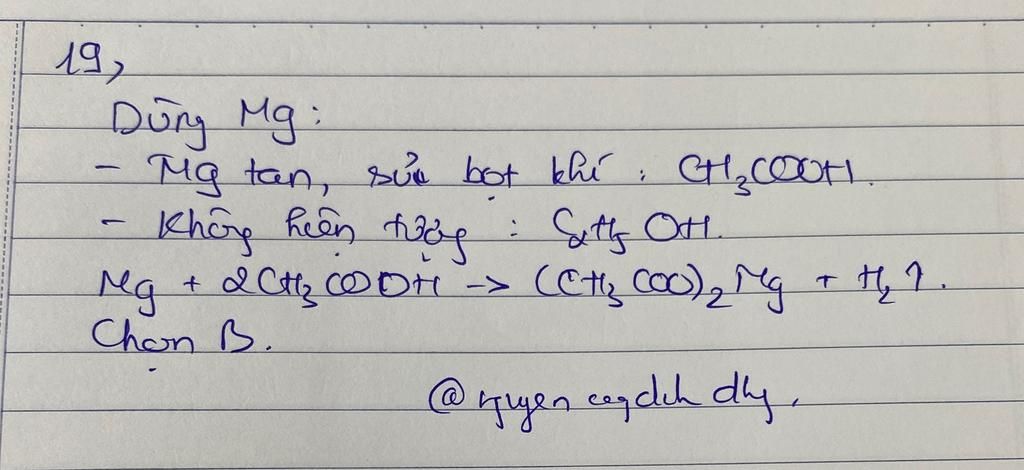 19,
Dùng Mg:
- Mg tan, sủi bọt khí : CH₃COOH.
- Không hiện tượng : C₂H₅OH.
Mg + 2CH₃COOH -> (CH₃COO)₂Mg + H₂↑.
Chọn B.
@nguyen